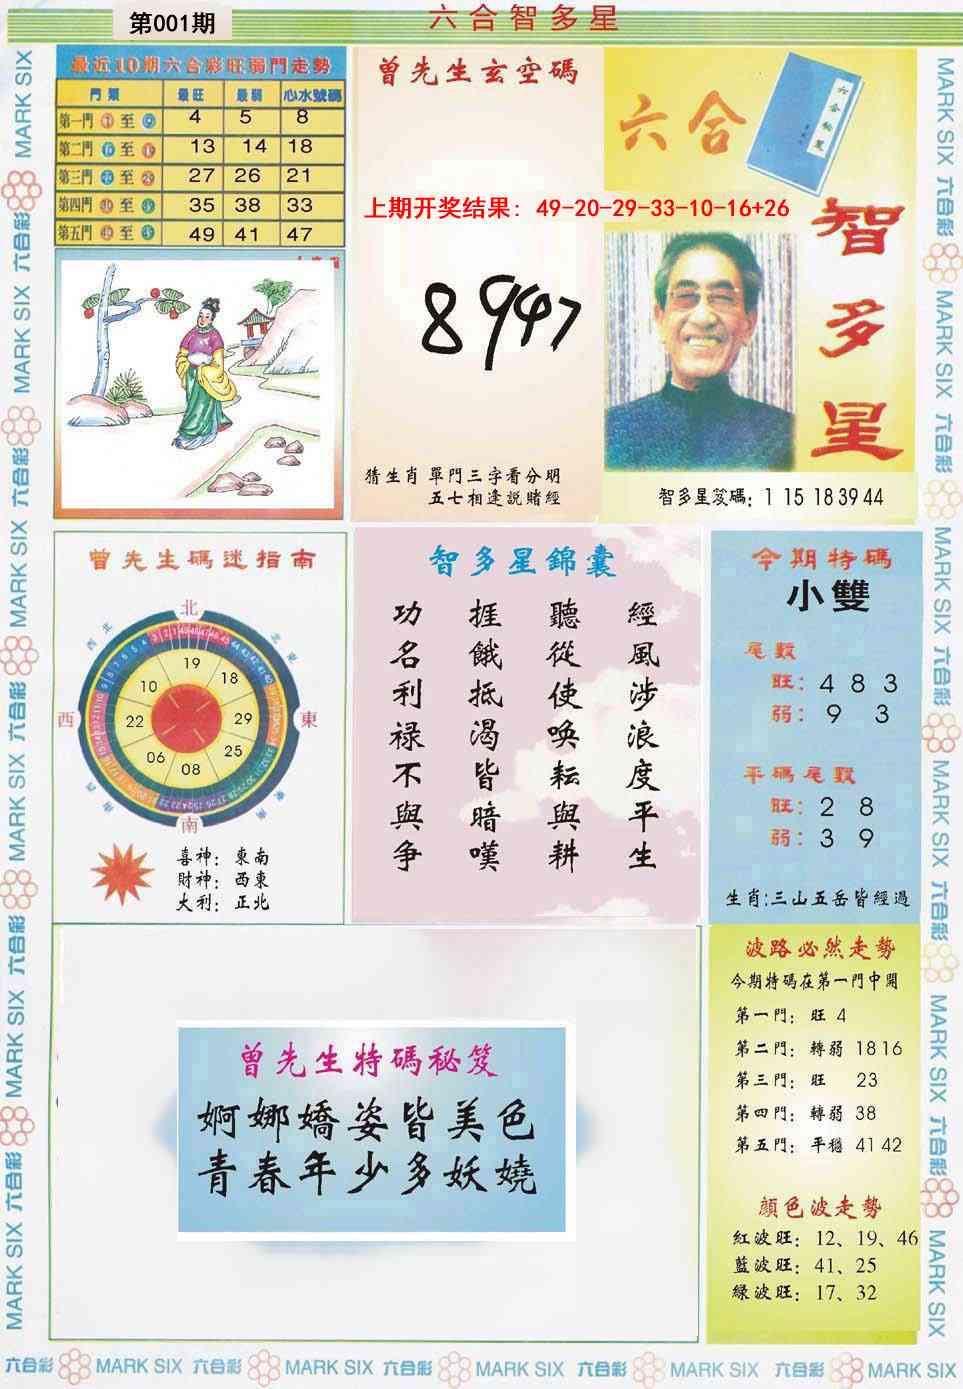 第001期
六合智多星
最近10期六合彩旺弱門走勢
門類 最旺 最弱 心水號碼
第一門 至 4 5 8
第二門 至 13 14 18
第三門 至 27 26 21
第四門 至 35 38 33
第五門 至 49 41 47
曾先生玄空碼
上期开奖结果: 49-20-29-33-10-16+26
8947
猜生肖 單門三字看分明
五七相逢説賭經
六合
智多星
智多星笈碼: 1 15 18 39 44
曾先生碼迷指南
北
西北
東北
西
東
西南
東南
南
19
18
29
25
08
06
22
10
喜神: 東南
財神: 西東
大利: 正北
智多星錦囊
經風涉浪度平生
聽從使喚耘與耕
捱餓抵渴皆暗嘆
功名利禄不與争
今期特碼
小雙
尾數
旺: 4 8 3
弱: 9 3
平碼尾數
旺: 2 8
弱: 3 9
生肖:三山五岳皆經過
曾先生特碼秘笈
婀娜嬌姿皆美色
青春年少多妖嬈
波路必然走勢
今期特碼在第一門中開
第一門: 旺 4
第二門: 轉弱 18 16
第三門: 旺 23
第四門: 轉弱 38
第五門: 平穩 41 42
顔色波走勢
紅波旺: 12、19、46
藍波旺: 41、25
綠波旺: 17、32
六合彩 MARK SIX 六合彩 MARK SIX 六合彩 MARK SIX 六合彩 MARK SIX 六合彩 MARK SIX